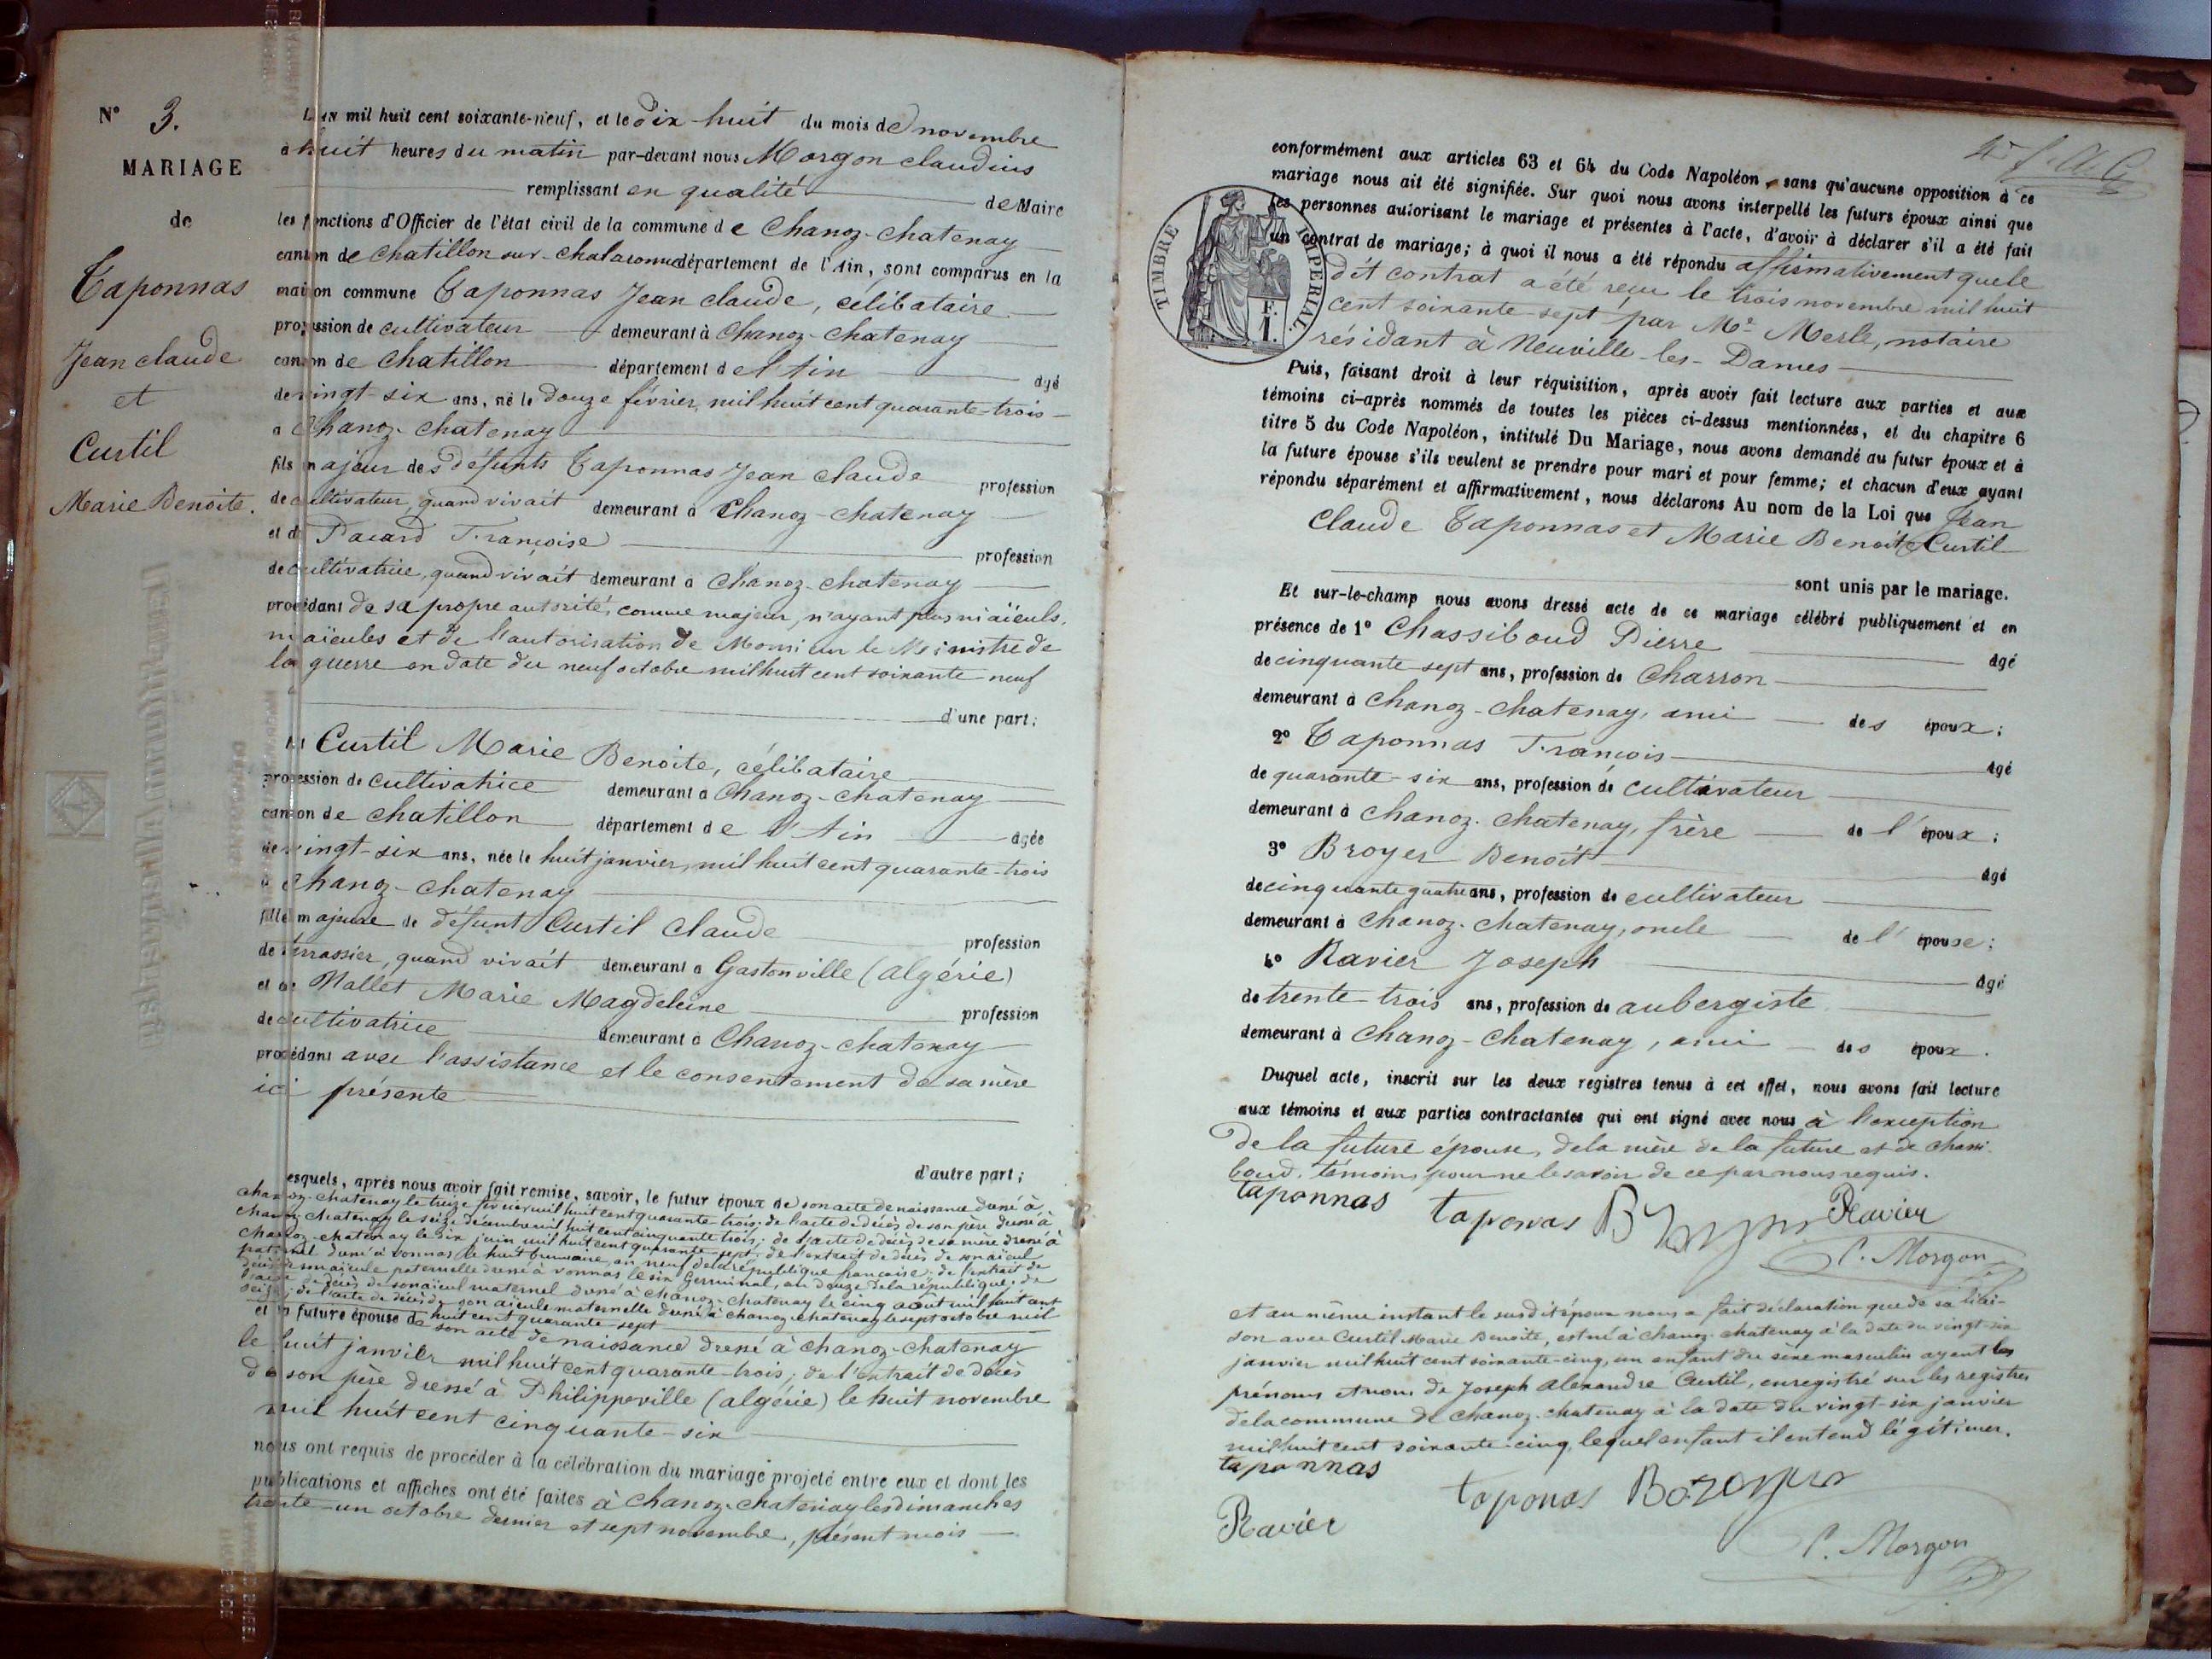 N° 3.
MARIAGE
de
Taponnas
Jean claude
et
Curtil
Marie Benoite.
L'an mil huit cent soixante-neuf, et le Dix-huit du mois de novembre
à huit heures du matin par-devant nous Morgon claudius
remplissant en qualité de Maire
les fonctions d'Officier de l'état civil de la commune de Chanoz-chatenay
canton de Chatillon-sur-Chalaronne département de l'Ain, sont comparus en la
maison commune Taponnas Jean claude, célibataire
profession de cultivateur demeurant à Chanoz-chatenay
canton de Chatillon département de l'Ain âgé
de vingt-six ans, né le Douze février, mil huit cent quarante-trois
à Chanoz-chatenay
fils majeur des défunts Taponnas Jean Claude profession
de cultivateur, quand vivait demeurant à Chanoz-chatenay
et de Pacard Françoise profession
de cultivatrice, quand vivait demeurant à Chanoz-chatenay
procédant de sa propre autorité, comme majeur, n'ayant plus ni aïeuls,
ni aïeules et de l'autorisation de Monsieur le Ministre de
la guerre en date du neuf octobre mil huit cent soixante-neuf
d'une part;
Et Curtil Marie Benoite, célibataire
profession de cultivatrice demeurant à Chanoz-chatenay
canton de chatillon département de l'Ain âgée
de vingt-six ans, née le huit janvier, mil huit cent quarante-trois
à Chanoz-chatenay
fille majeure de défunt Curtil Claude profession
de terrassier, quand vivait demeurant à Gastonville (algérie)
et de Nallet Marie Magdeleine profession
de cultivatrice demeurant à Chanoz-chatenay
procédant avec l'assistance et le consentement de sa mère
ici présente
d'autre part;
esquels, après nous avoir fait remise, savoir, le futur époux de son acte de naissance dressé à
chanoz-chatenay le treize février mil huit cent quarante trois; de l'acte de décès de son père dressé à
chanoz-chatenay le seize décembre mil huit cent cinquante trois; de l'acte de décès de sa mère dressé à
chanoz-chatenay le six juin mil huit cent quarante-sept; de l'extrait de décès de son aïeul
paternel dressé à vonnas le huit brumaire, an neuf de la république française; de l'extrait de
décès de son aïeule paternelle dressé à vonnas le six Germinal, an douze de la république; de
l'acte de décès de son aïeul maternel dressé à chanoz-chatenay le cinq août mil huit cent
seize; de l'acte de décès de son aïeule maternelle dressé à chanoz-chatenay le sept octobre mil
huit cent quarante-sept
et la future épouse de son acte de naissance dressé à chanoz-chatenay
le huit janvier mil huit cent quarante-trois; de l'extrait de décès
de son père dressé à Philippeville (algérie) le huit novembre
mil huit cent cinquante-six
nous ont requis de procéder à la célébration du mariage projeté entre eux et dont les
publications et affiches ont été faites à Chanoz-chatenay les dimanches
trente-un octobre dernier et sept novembre, présent mois
conformément aux articles 63 et 64 du Code Napoléon, sans qu'aucune opposition à ce
mariage nous ait été signifiée. Sur quoi nous avons interpellé les futurs époux ainsi que
les personnes autorisant le mariage et présentes à l'acte, d'avoir à déclarer s'il a été fait
un contrat de mariage; à quoi il nous a été répondu affirmativement que le
dit contrat a été reçu le trois novembre mil huit
cent soixante-sept par Me Merle, notaire
résidant à Neuville-les-Dames
TIMBRE IMPÉRIAL.
F.
1.
Puis, faisant droit à leur réquisition, après avoir fait lecture aux parties et aux
témoins ci-après nommés de toutes les pièces ci-dessus mentionnées, et du chapitre 6
titre 5 du Code Napoléon, intitulé Du Mariage, nous avons demandé au futur époux et à
la future épouse s'ils veulent se prendre pour mari et pour femme; et chacun d'eux ayant
répondu séparément et affirmativement, nous déclarons Au nom de la Loi que Jean
Claude Taponnas et Marie Benoite Curtil
sont unis par le mariage.
Et sur-le-champ nous avons dressé acte de ce mariage célébré publiquement et en
présence de 1° Chassiboud Pierre âgé
de cinquante sept ans, profession de Charron
demeurant à Chanoz-chatenay, ami des époux;
2° Taponnas François âgé
de quarante-six ans, profession de cultivateur
demeurant à Chanoz-chatenay, frère de l'époux;
3° Broyer Benoit âgé
de cinquante quatre ans, profession de cultivateur
demeurant à Chanoz-chatenay, oncle de l'épouse;
4° Ravier Joseph âgé
de trente-trois ans, profession de aubergiste
demeurant à Chanoz-Chatenay, ami des époux.
Duquel acte, inscrit sur les deux registres tenus à cet effet, nous avons fait lecture
aux témoins et aux parties contractantes qui ont signé avec nous à l'exception
De la future épouse, de la mère de la future et de Chassi-
boud, témoins pour ne le savoir de ce par nous requis.
taponnas taponas Ravier
C. Morgon
et au même instant le susdit époux nous a fait déclaration que de sa liai-
son avec Curtil Marie Benoite, est né à chanoz-chatenay à la date du vingt-six
janvier mil huit cent soixante-cinq, un enfant du sexe masculin ayant les
prénoms et nom de Joseph Alexandre Curtil, enregistré sur les registres
de la commune de Chanoz-chatenay à la date du vingt-six janvier
mil huit cent soixante-cinq, lequel enfant il entend légitimer.
taponnas taponas
Ravier
C. Morgon